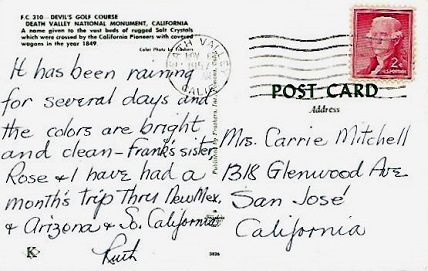 F.C. 310 DEVIL'S GOLF COURSE
DEATH VALLEY NATIONAL MONUMENT, CALIFORNIA
A name given to the vast beds of rugged Salt Crystals
which were crossed by the California Pioneers with covered
wagons in the year 1849.
Color Photo by
It has been raining
for several days and
the colors are bright
and clean - Frank's sister
Rose & I have had a
month's trip Thru New Mex.
& Arizona & So. California
Ruth
K
3826
VALLEY
CALIF.
2¢
POST CARD
Address
Mrs. Carrie Mitchell
1318 Glenwood Ave
San José
California